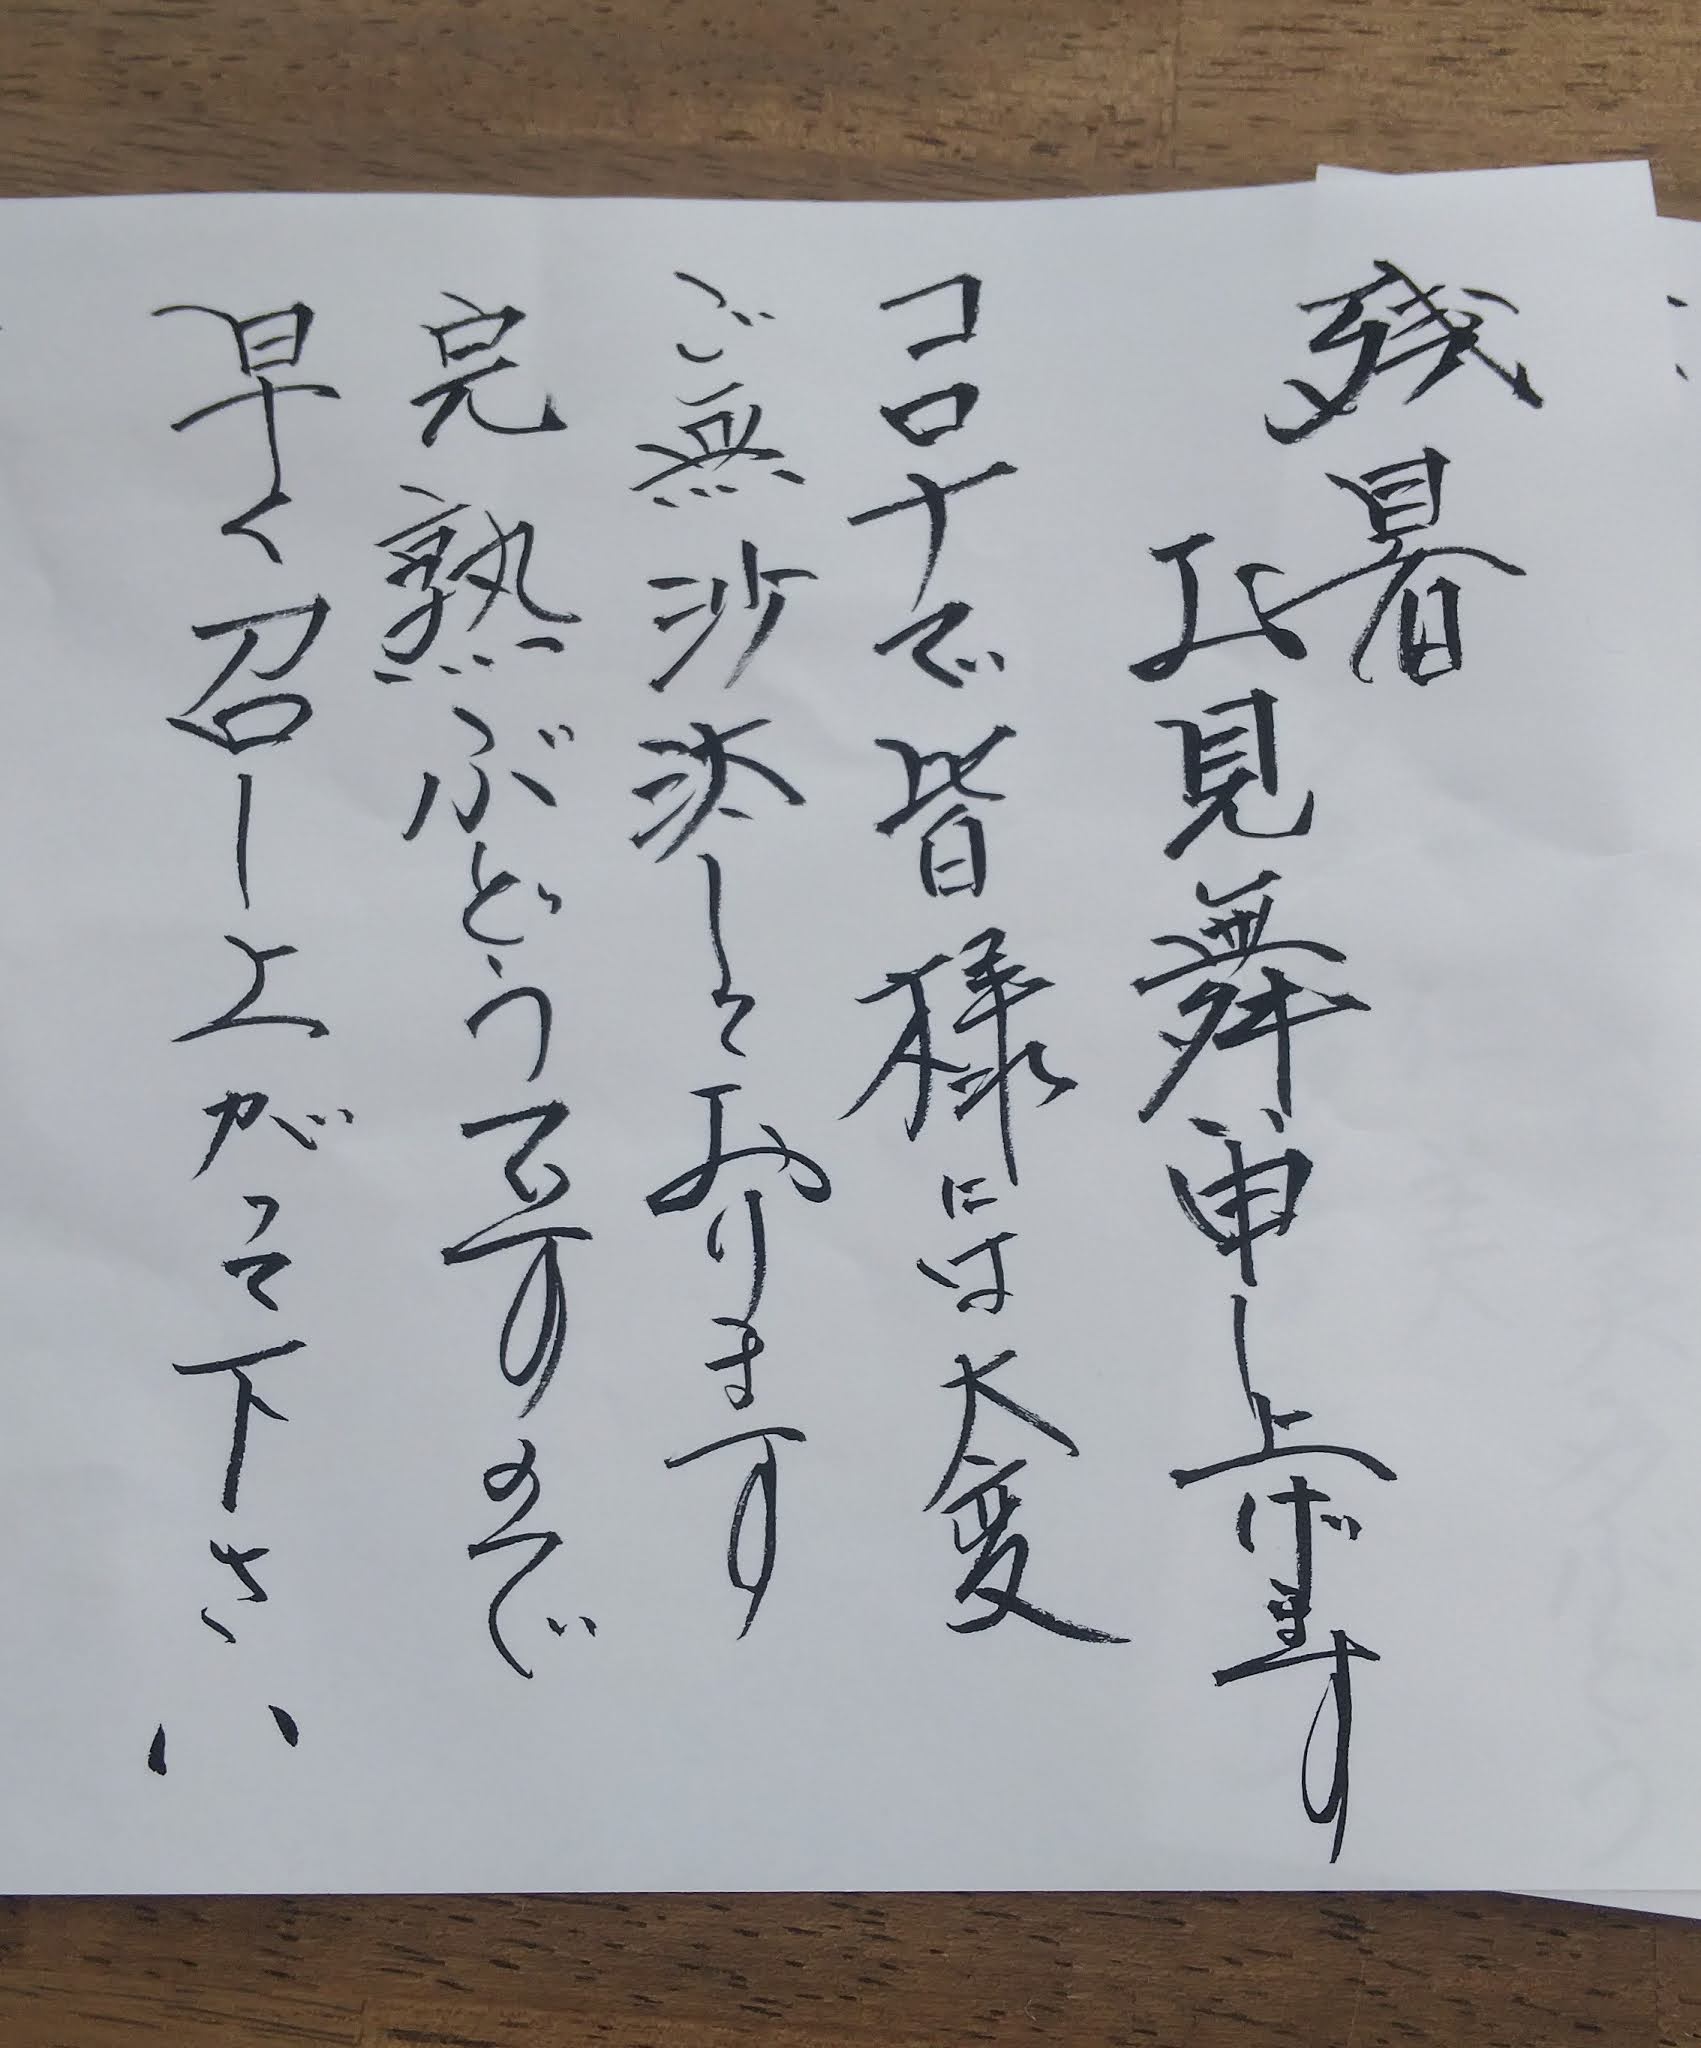 残暑
お見舞申し上げます
コロナで皆様には大変
ご無沙汰しております
完熟ぶどうですので
早く召し上がって下さい